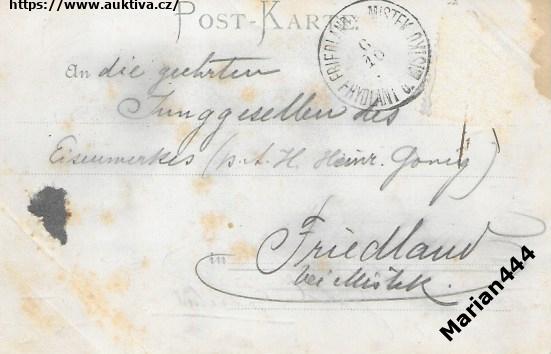 https://www.auktiva.cz/
POST-KARTE
FRIEDLAND b. MISTEK
An die geehrten
Junggesellen des
Eisenwerkes (p.A. H. Heinr.
in Friedland
bei Mistek.
Marian444